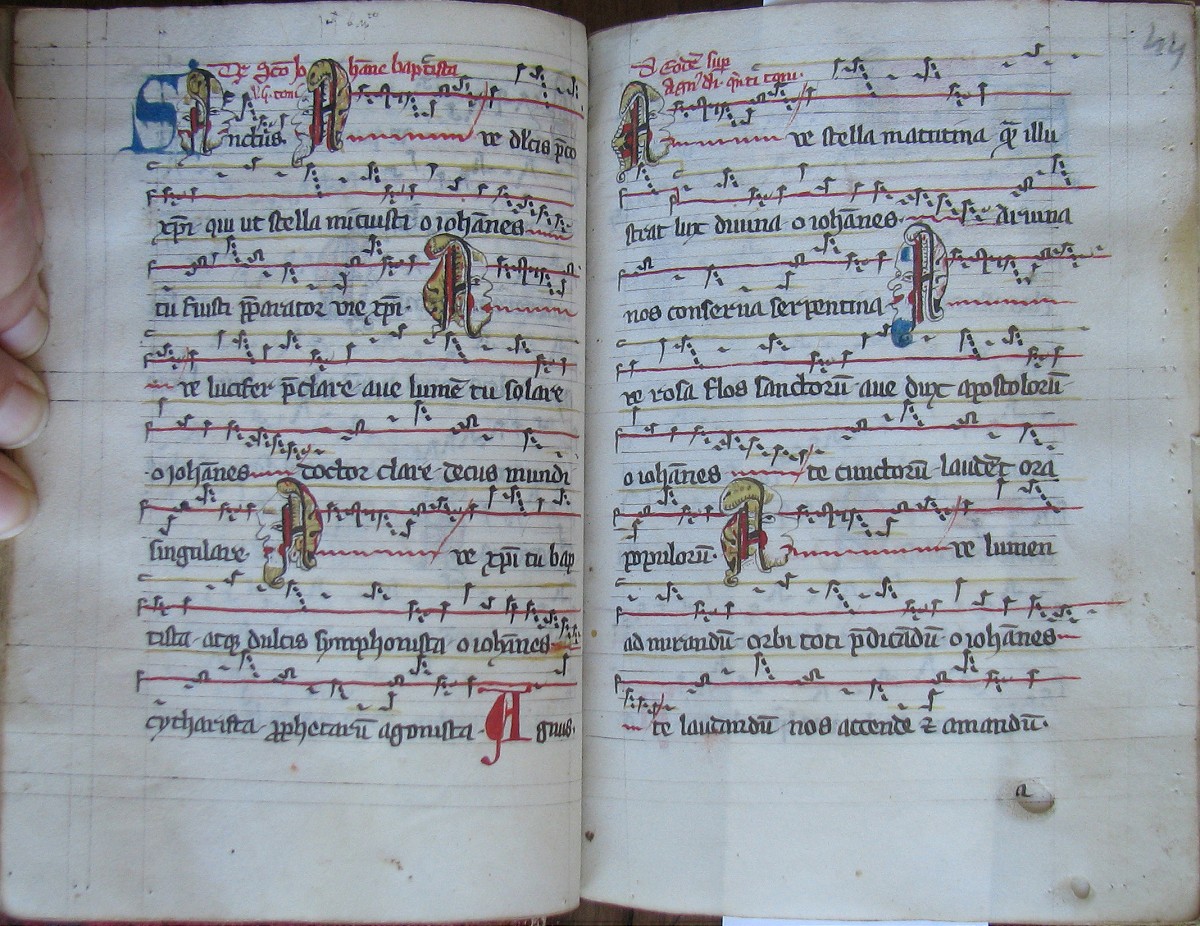 De Sc̄o Io hāne bap̄tista
Sanctus. A ve dl̄cis p̄co
xp̄i qui ut stella micuisti o iohān̄es
tu fuisti p̄parator vie xp̄i. A
ve lucifer p̄clare aue lumē tu solare
o iohān̄es doctor clare decus mundi
singulare. A ve xp̄i tu bap
tista atq; dulcis symphonista o iohān̄es
cytharista p̄phetarū agonista. Agnus.
44
De Eodē sup
agn' di.
A ve stella matutina q̄ illu
strat lux diuina o iohān̄es diuina
nos conserua serpentina A
ve rosa flos sanctorū aue dux apostolorū
o iohān̄es te cunctorū laudēt ora
populorū. A ve lumen
ad mirandū orbi toti p̄dicādū o iohān̄es
te laudandū nos accende ⁊ amandū.
a